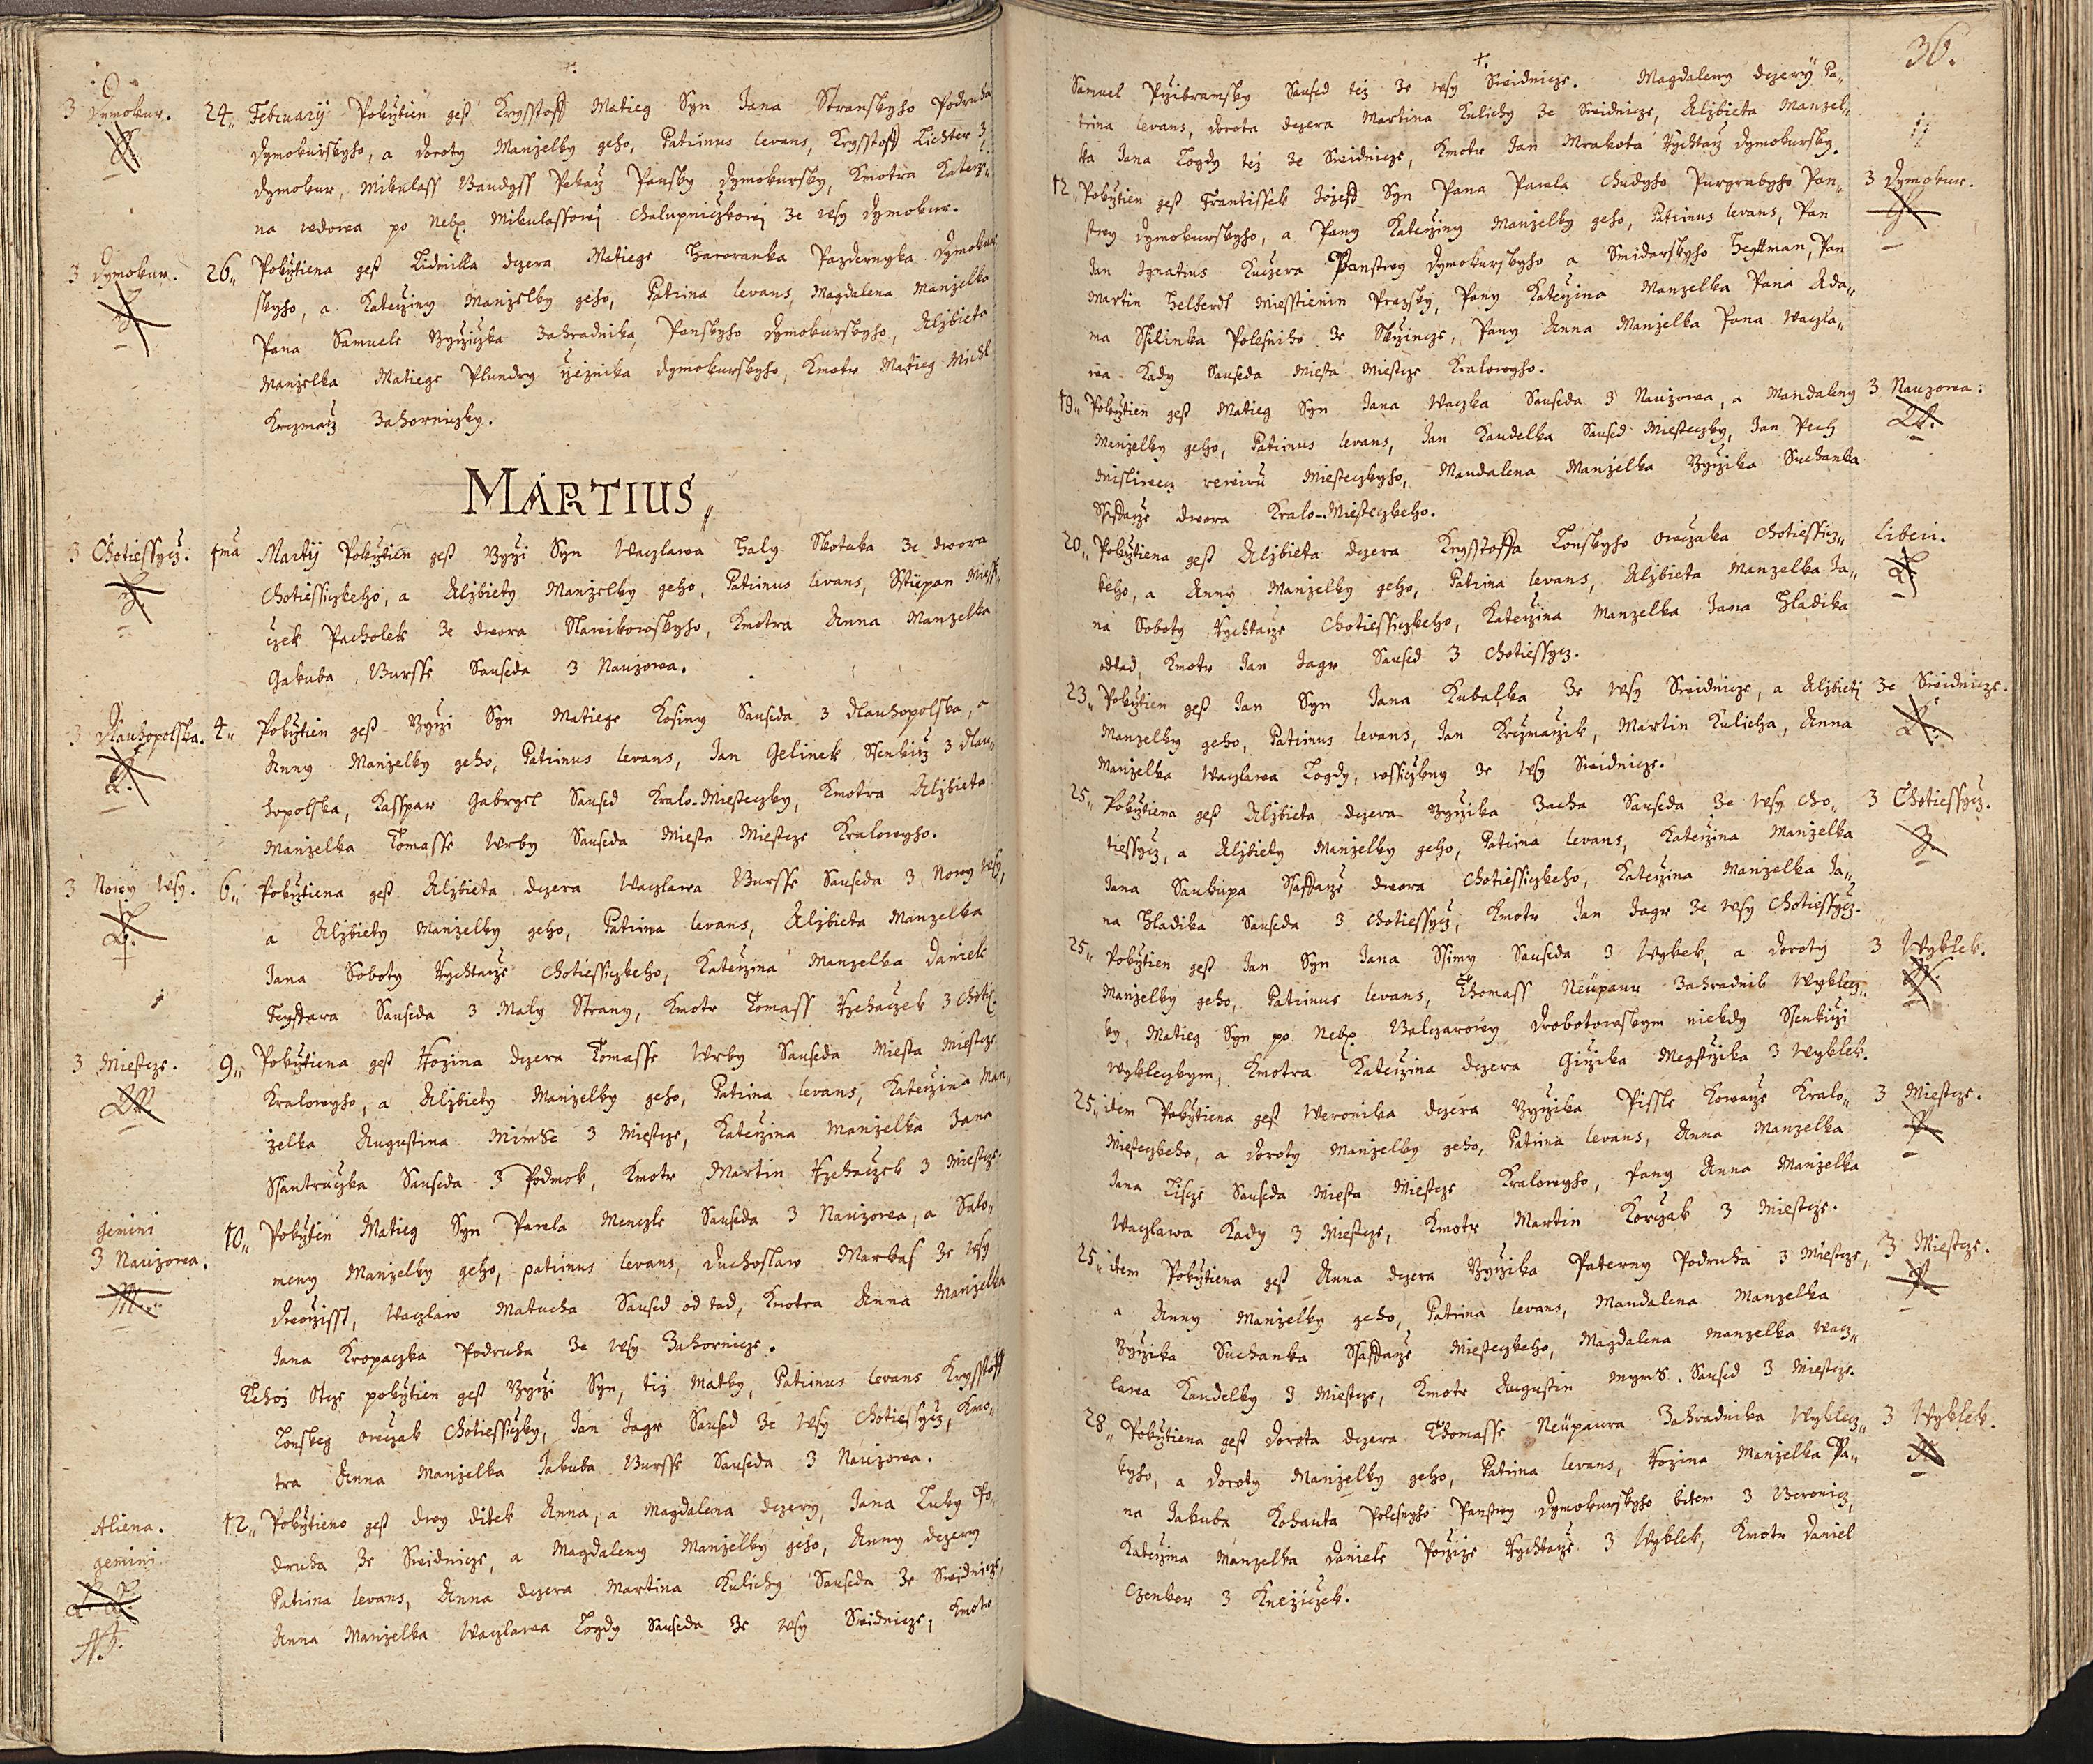 3 Dymokur.
24. February Pokřtien gest Krysstoff Matieg Syn Jana Stranskyho Podruha
Dymokurskyho, a Doroty Manželky geho, Patrinus levans, Krysstoff Lichter 3
Dymokur, Mikulass Baudyss Pekarž Pansky Dymokursky, Kmotra Kateři-
na wdowa po Neb. Mikulassowi Chalupniczkowi ze wsy Dymokur.
3 Dymokur.
26. Pokřtiena gest Lidmilla dczera Matiege Haworanka Pazdernyka Dymokur
skyho, a Kateřziny Manželky geho, Patrina levans, Magdalena Manželka
Pana Samuele Zahradnika Panskyho Dymokurskyho, Alžbieta
Manželka Matiege Plundry řeznika dymokurskyho, Kmotr Matieg Michl
Krczmarž Zahorniczky.
MARTIUS
3 Chotiessycz.
1ma Martij Pokřtien gest Bržyži Syn Waczlawa Haly Skotaka ze dwora
Chotiessiczkeho, a Alžbiety Manželky geho, Patrinus levans, Sstiepan Miess-
czek Pacholek ze dwora Slawikowskyho, Kmotra Anna Manželka
Gakuba Bursse Sauseda 3 Nauzowa.
3 Dlauhopolska.
4. Pokřtien gest Bržyži Syn Matiege Kosiny Sauseda 3 Dlauhopolska, a
Anny Manželky geho, Patrinus levans, Jan Gelinek Ssenkirž 3 Dlau-
hopolska, Kasspar Gabryel Saused Kralo-Miesteczky, Kmotra Alžbieta
Manželka Tomasse Wrby Sauseda Miesta Miestcze Kralowyho.
3 Nowy Wsy.
6. Pokřtiena gest Alžbieta dczera Waczlawa Bursse Sauseda 3 Nowy Wsy,
a Alžbiety Manželky geho, Patrina levans, Alžbieta Manželka
Jana Soboty Rychtarže Chotiessiczkeho, Kateřzina Manželka Daniele
Feyffara Sauseda 3 Maly Strany, Kmotr Tomass Ržehaczek 3 Choties.
3 Miestcze.
9. Pokřtiena gest Rozina dczera Tomasse Wrby Sauseda Miesta Miestcze
Kralowyho, a Alžbiety Manželky geho, Patrina levans, Kateřzina Man-
želka Augustina Mimse 3 Miestcze, Kateřzina Manželka Jana
Ssantruczka Sauseda 3 Podmok, Kmotr Martin Ržehaczek 3 Miestcze.
gemini
3 Nauzowa.
10. Pokřtien Matieg Syn Pawla Menczle Sauseda 3 Nauzowa, a Salo-
meny Manželky geho, patrinus levans, Duchoslaw Markas ze wsy
Dworzisst, Waczlaw Matucha Saused od tad, Kmotra Anna Manželka
Jana Kropaczka Podruha ze wsy Zahornicze.
Tehož Otcze pokřtien gest Bržyži Syn, tiž Matky, Patrinus levans Krysstoff
Lonskey oweczak Chotiessiczky, Jan Jagr Saused ze wsy Chotiessycz, Kmo-
tra Anna Manželka Jakuba Bursse Sauseda 3 Nauzowa.
Aliena.
gemini
12. Pokřtieno gest dwy ditek Anna, a Magdalena dczery, Jana Luky Po-
druha ze Swidnicze, a Magdaleny Manželky geho, Anny dczery
Patrina levans, Anna dczera Martina Kulichy Sauseda ze Swidnicze,
Anna Manželka Waczlawa Logdy Sauseda ze wsy Swidnicze, Kmotr
36.
Samuel Pržibramsky Saused tež ze wsy Swidnicze. Magdaleny dczery Pa-
trina levans, Dorota dczera Martina Kulichy ze Swidnicze, Alžbieta Manžel-
ka Jana Logdy tež ze Swidnicze, Kmotr Jan Mrakota Rychtarž Dymokursky.
12. Pokřtien gest Frantissek Jozeff Syn Pana Pawla Chudyho Purgrabyho Pan-
stwy Dymokurskyho, a Pany Kateřziny Manželky geho, Patrinus levans, Pan
Jan Ignatius Kuczera Panstwy Dymokurskyho a Smidarskyho Heytman, Pan
Martin Helferdt Miesstienin Prazsky, Pany Kateřzina Manželka Pana Ada-
ma Ssilinka Polesniho ze Skřzincze, Pany Anna Manželka Pana Waczla-
wa Kady Sauseda Miesta Miestcze Kralowyho.
3 Dymokur.
19. Pokřtien gest Matieg Syn Jana Waczka Sauseda 3 Nauzowa, a Mandaleny
Manželky geho, Patrinus levans, Jan Kaudelka Saused Miesteczky, Jan Pech
Misliwecz rewiru Miesteczkyho, Mandalena Manželka Bržyžika Suchanka
Ssaffarže dwora Kralo-Miesteczkeho.
3 Nauzowa.
20. Pokřtiena gest Alžbieta dczera Krysstoffa Lonskyho oweczaka Chotiessicz-
keho, a Anny Manželky geho, Patrina levans, Alžbieta Manželka Ja-
na Soboty Rychtarže Chotiessiczkeho, Kateřzina Manželka Jana Hladika
odtad, Kmotr Jan Jagr Saused 3 Chotiessycz.
Liberi.
23. Pokřtien gest Jan Syn Jana Kubalka ze wsy Swidnicze, a Alžbieti
Manželky geho, Patrinus levans, Jan Krczmaržik, Martin Kulicha, Anna
Manželka Waczlawa Logdy, wssiczkny ze wsy Swidnicze.
ze Swidnicze.
25. Pokřtiena gest Alžbieta dczera Bržyžika Zacha Sauseda ze wsy Cho-
tiessycz, a Alžbiety Manželky geho, Patrina levans, Kateřzina Manželka
Jana Saukupa Ssaffarže dwora Chotiessiczkeho, Kateřzina Manželka Ja-
na Hladika Sauseda 3 Chotiessycz, Kmotr Jan Jagr ze wsy Chotiessycz.
3 Chotiessycz.
25. Pokřtien gest Jan Syn Jana Ssimy Sauseda 3 Wyklek, a Doroty
Manželky geho, Patrinus levans, Thomass Neüpaur Zahradnik Wyklecz-
ky, Matieg Syn po Neb. Balczarowy Drobotowskym niekdy Ssenkirži
Wykleczkym, Kmotra Kateřzina dczera Giržika Megstržika 3 Wyklek.
3 Wyklek.
25. idem Pokřtiena gest Weronika dczera Bržyžika Pissle Kowarže Kralo-
Miesteczkeho, a Doroty Manželky geho, Patrina levans, Anna Manželka
Jana Liscze Sauseda Miesta Miestcze Kralowyho, Pany Anna Manželka
Waczlawa Kady 3 Miestcze, Kmotr Martin Korczak 3 Miestcze.
3 Miestcze.
25. item Pokřtiena gest Anna dczera Bržyžika Paterny Podruha 3 Miestcze,
a Anny Manželky geho, Patrina levans, Mandalena Manželka
Bržyžika Suchanka Ssaffarže Miesteczkeho, Magdalena Manželka Wacz-
lawa Kaudelky 3 Miestcze, Kmotr Augustin Myms Saused 3 Miestcze.
3 Miestcze.
28. Pokřtiena gest Dorota dczera Thomasse Neüpaura Zahradnika Wyklecz-
kyho, a Doroty Manželky geho, Patrina levans, Rozina Manželka Pa-
na Jakuba Kohauta Polesnyho Panstwy Dymokurskyho bitem 3 Beronicz,
Kateřzina Manželka Daniele Pořzize Rychtarže 3 Wyklek, Kmotr Daniel
Czenker 3 Kneziczek.
3 Wyklek.